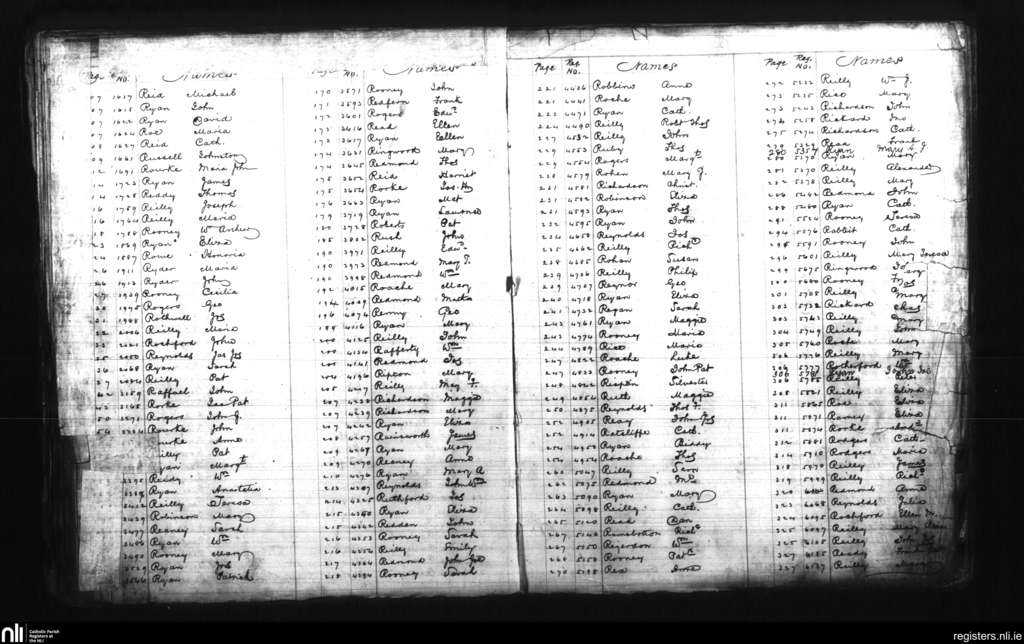 Page No. Names
07 1617 Reid Michael
07 1618 Ryan John
07 1622 Ryan David
07 1624 Roe Maria
08 1627 Reid Cath.
09 1661 Russell Johnston
12 1691 Rourke Maria
14 1723 Ryan James
14 1728 Reddy Thomas
16 1759 Reilly Joseph
16 1764 Reilly Maria
18 1788 Rooney Wm Archer
23 1859 Ryan Eliza
24 1887 Rowe Honoria
26 1911 Ryder Maria
26 1913 Ryder John
27 1929 Rooney Cecilia
1975 Rogers Geo
1988 Rothwell Jas
2006 Reilly Maria
2021 Rochford John
2050 Reynolds Jas Jos
2068 Ryan Sarah
2086 Reilly Pat
42 2159 Raffael John
2165 Rorke Pat
50 2271 Rogers John J.
54 Rourke John
Rourke Anne
Reilly Pat
Ryan Margt
Reddy Wm
Ryan Anastatia
Reilly Teresa
Robinson Mary
2477 Reaney Sarah
2486 Ryan Wm
2490 Rooney Mary
2529 Ryan Jos
2566 Ryan Patrick
No. Names
170 3571 Rooney John
171 3593 Redfern Frank
172 3601 Rogers Edwd
173 3616 Read Ellen
173 3617 Ryan Ellen
174 3631 Ringwood Mary
174 3645 Redmond Thos
175 3652 Reid Harriet
175 3654 Rooke Jas. Hy
176 3663 Ryan Mat
179 3719 Ryan Laurence
180 3728 Roberts Pat
185 3802 Rush John
190 3971 Reilly Edwd
190 3973 Redmond Mary T.
190 3998 Redmond Wm
192 4015 Roache Mary
194 Redmond
196 4076 Penny Geo
4116 Ryan Mary
200 4125 Reilly John
200 4134 Rafferty Wm
4141 Redmond Jas
4196 Ripton Mary
4227 Reilly Mary F.
207 4238 Richardson Maggie
207 4239 Richardson Mary
207 4242 Ryan Eliza
208 4257 Rainsworth James
209 4267 Ryan Mary
209 4270 Reaney Anne
210 4276 Ryan Mary A
212 4297 Reynolds John Wm
214 4325 Rutherford Jos
215 4340 Ryan Eliza
215 4342 Redden John
216 4353 Rooney Sarah
216 4356 Reilly Emily
217 4364 Redmond John Geo
218 4384 Rooney Sarah
Page Reg No. Names
221 4436 Robbins Anne
221 4441 Roche Mary
223 4471 Ryan Cath
224 4490 Reilly Robt Thos
227 4532 Reilly John
229 4553 Ruby Thos
229 4554 Rogers Margt
230 4579 Rohan Mary J.
231 4581 Richardson Christ.
231 4582 Robinson Eliza
231 4593 Ryan Thos
232 4595 Ryan John
234 4650 Reynolds Jos
235 4662 Reilly Richd
238 4685 Rohan Susan
239 4706 Reilly Philip
239 4707 Raynor Geo
240 4718 Ryan Eliza
241 4732 Regan Sarah
242 4761 Ryan Maggie
243 4774 Rooney Maria
244 4789 Rice Maria
247 4822 Roache Luke
247 4833 Rooney John Pat
248 4842 Silvester
249 4854 Reith Maggie
250 4875 Reynolds Thos F.
252 4905 Reay John Jos
252 4914 Ratcliffe Cath.
254 4950 Ryan Biddy
254 4954 Roache Thos
260 5047 Reilly Sara
262 5075 Redmond
263 5090 Ryan Mary
264 5098 Reilly Cath.
265 5120 Read Dan
267 5146 Ramsbottom Richd
267 5150 Wm
268 5150 Rooney Patk
270 5198 Rea Anne
Page Reg. No. Names
272 5223 Reilly Wm J.
273 5235 Rice Mary
273 5245 Richardson John
276 5258 Richard Jno
275 5274 Richardson Cath.
279 5322 Read
280 5354 Ryan Mary J
280 5370 Ryan Mary
281 5370 Reilly Alexander
282 5378 Reilly Mary
5242 Redmond John
288 5260 Ryan Cath.
291 5524 Rooney Teresa
294 5576 Rabbit Cath.
295 5591 Rooney John
296 5601 Reilly Mary Teresa
299 5675 Ringwood
300 5680 Rooney Thos
301 5705 Reilly Mary
303 5732 Rickard Chas
303 5742 Reilly Mary
304 5749 Reilly John
305 5760 Roche Mary
306 5776 Reilly Mary
306 5777 Rutherford Wm
306 Ryan
306 5785 Reilly
308 5821 Reilly Eliza
311 5865 Eliza
311 5871 Raney Eliza
311 5874 Rorke
312 5881 Rodgers Cath.
314 5910 Rodgers Maria
318 5979 Reilly James
319 5989 Reilly Richd
320 Redmond Anne
323 6068 Reynolds Julia
324 6095 Rochford Ellen M.
325 6097 Reilly
325 6105 Reilly John
327 6125 Reddy
327 6137 Reilly Mary
nli
Catholic Parish Registers at the NLI
registers.nli.ie